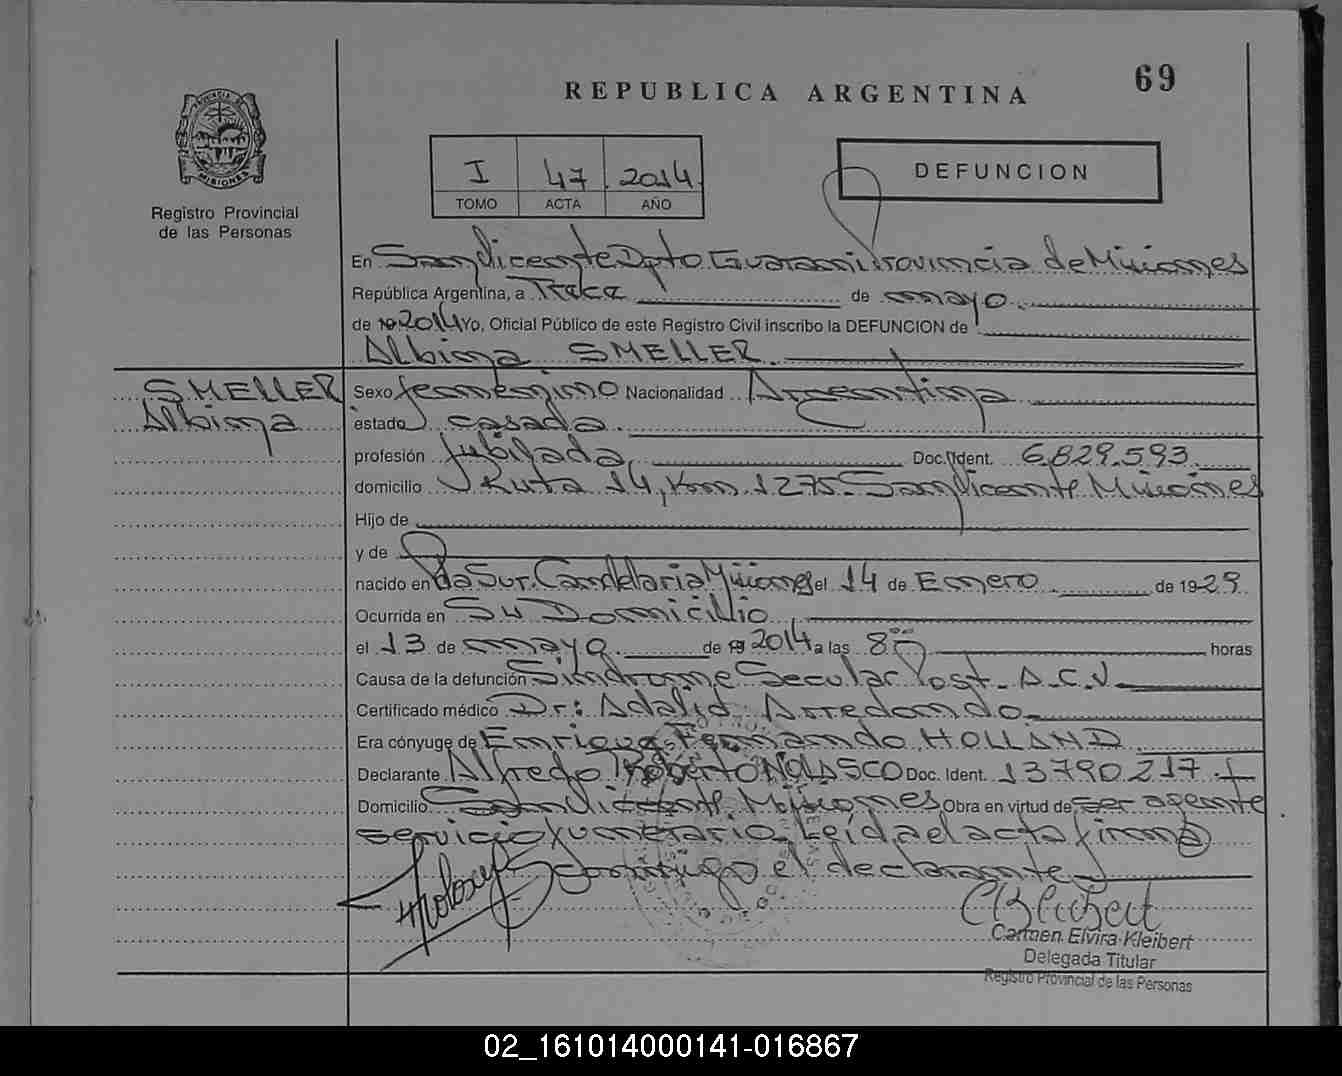 69
REPUBLICA ARGENTINA
PROVINCIA DE MISIONES
Registro Provincial
de las Personas
I 47 2014
TOMO ACTA AÑO
DEFUNCION
En San Vicente Dpto Guarani Provincia de Misiones
República Argentina, a Trece de mayo
de 19 2014 Yo, Oficial Público de este Registro Civil inscribo la DEFUNCION de
Albina SMELLER
SMELLER
Albina
Sexo femenino Nacionalidad Argentina
estado casada
profesión Jubilada Doc. Ident. 6.829.593
domicilio Ruta 14, Km 1275. San Vicente Misiones
Hijo de
y de
nacido en Sur. Candelaria Misiones el 14 de Enero de 1929
Ocurrida en Su Domicilio
el 13 de mayo de 19 2014 a las 8 00 horas
Causa de la defunción Sindrome Secular Post A.C.V
Certificado médico Dr: Adalid Arredondo
Era cónyuge de Enrique Fernando HOLLAND
Declarante Alfredo Roberto NOLASCO Doc. Ident. 13790217
Domicilio San Vicente Misiones Obra en virtud de ser agente
servicio funerario. Leída el acta firma
conmigo el declarante
Carmen Elvira Kleibert
Delegada Titular
Registro Provincial de las Personas
02_161014000141-016867